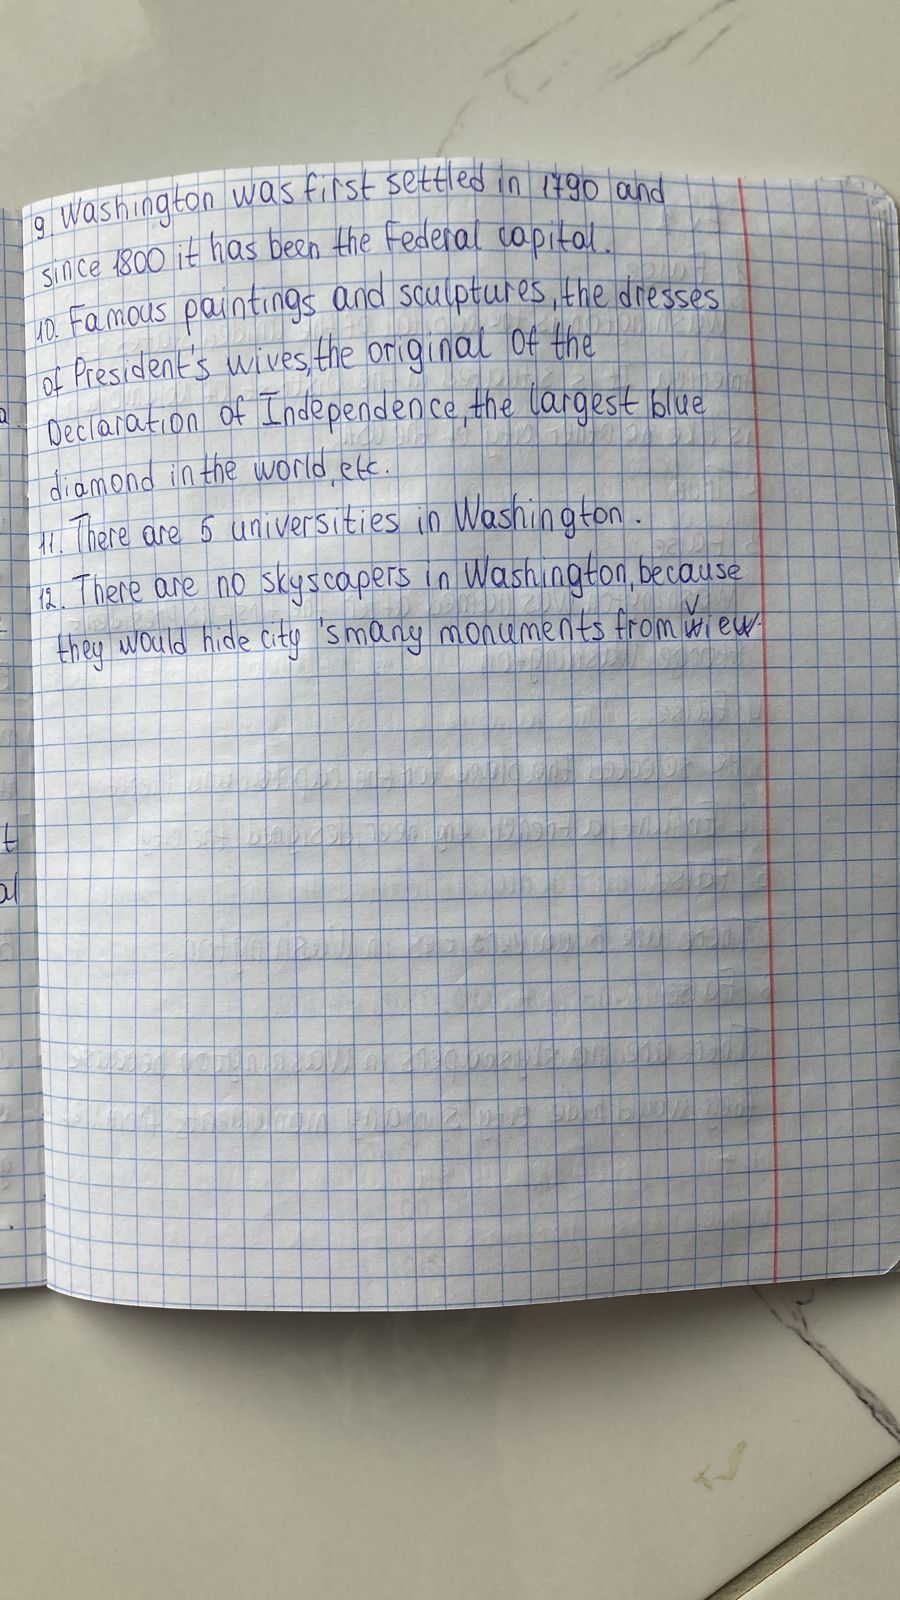 9. Washington was first settled in 1790 and
since 1800 it has been the Federal capital.
10. Famous paintings and sculptures, the dresses
of President's wives, the original of the
Declaration of Independence, the largest blue
diamond in the world, etc.
11. There are 5 universities in Washington.
12. There are no skyscapers in Washington, because
they would hide city 's many monuments from view.
a
t
al